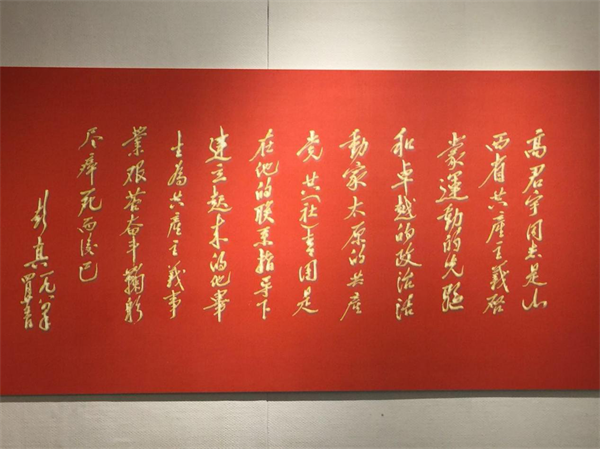 高君宇同志是山
西省共產主義启
蒙運動的先驱
和卓越的政治活
動家太原的共產
党共(社)青团是
在他的联系指导下
建立起来的他畢
生为共產主義事
業艰苦奋斗鞠躬
尽瘁死而後已
彭真